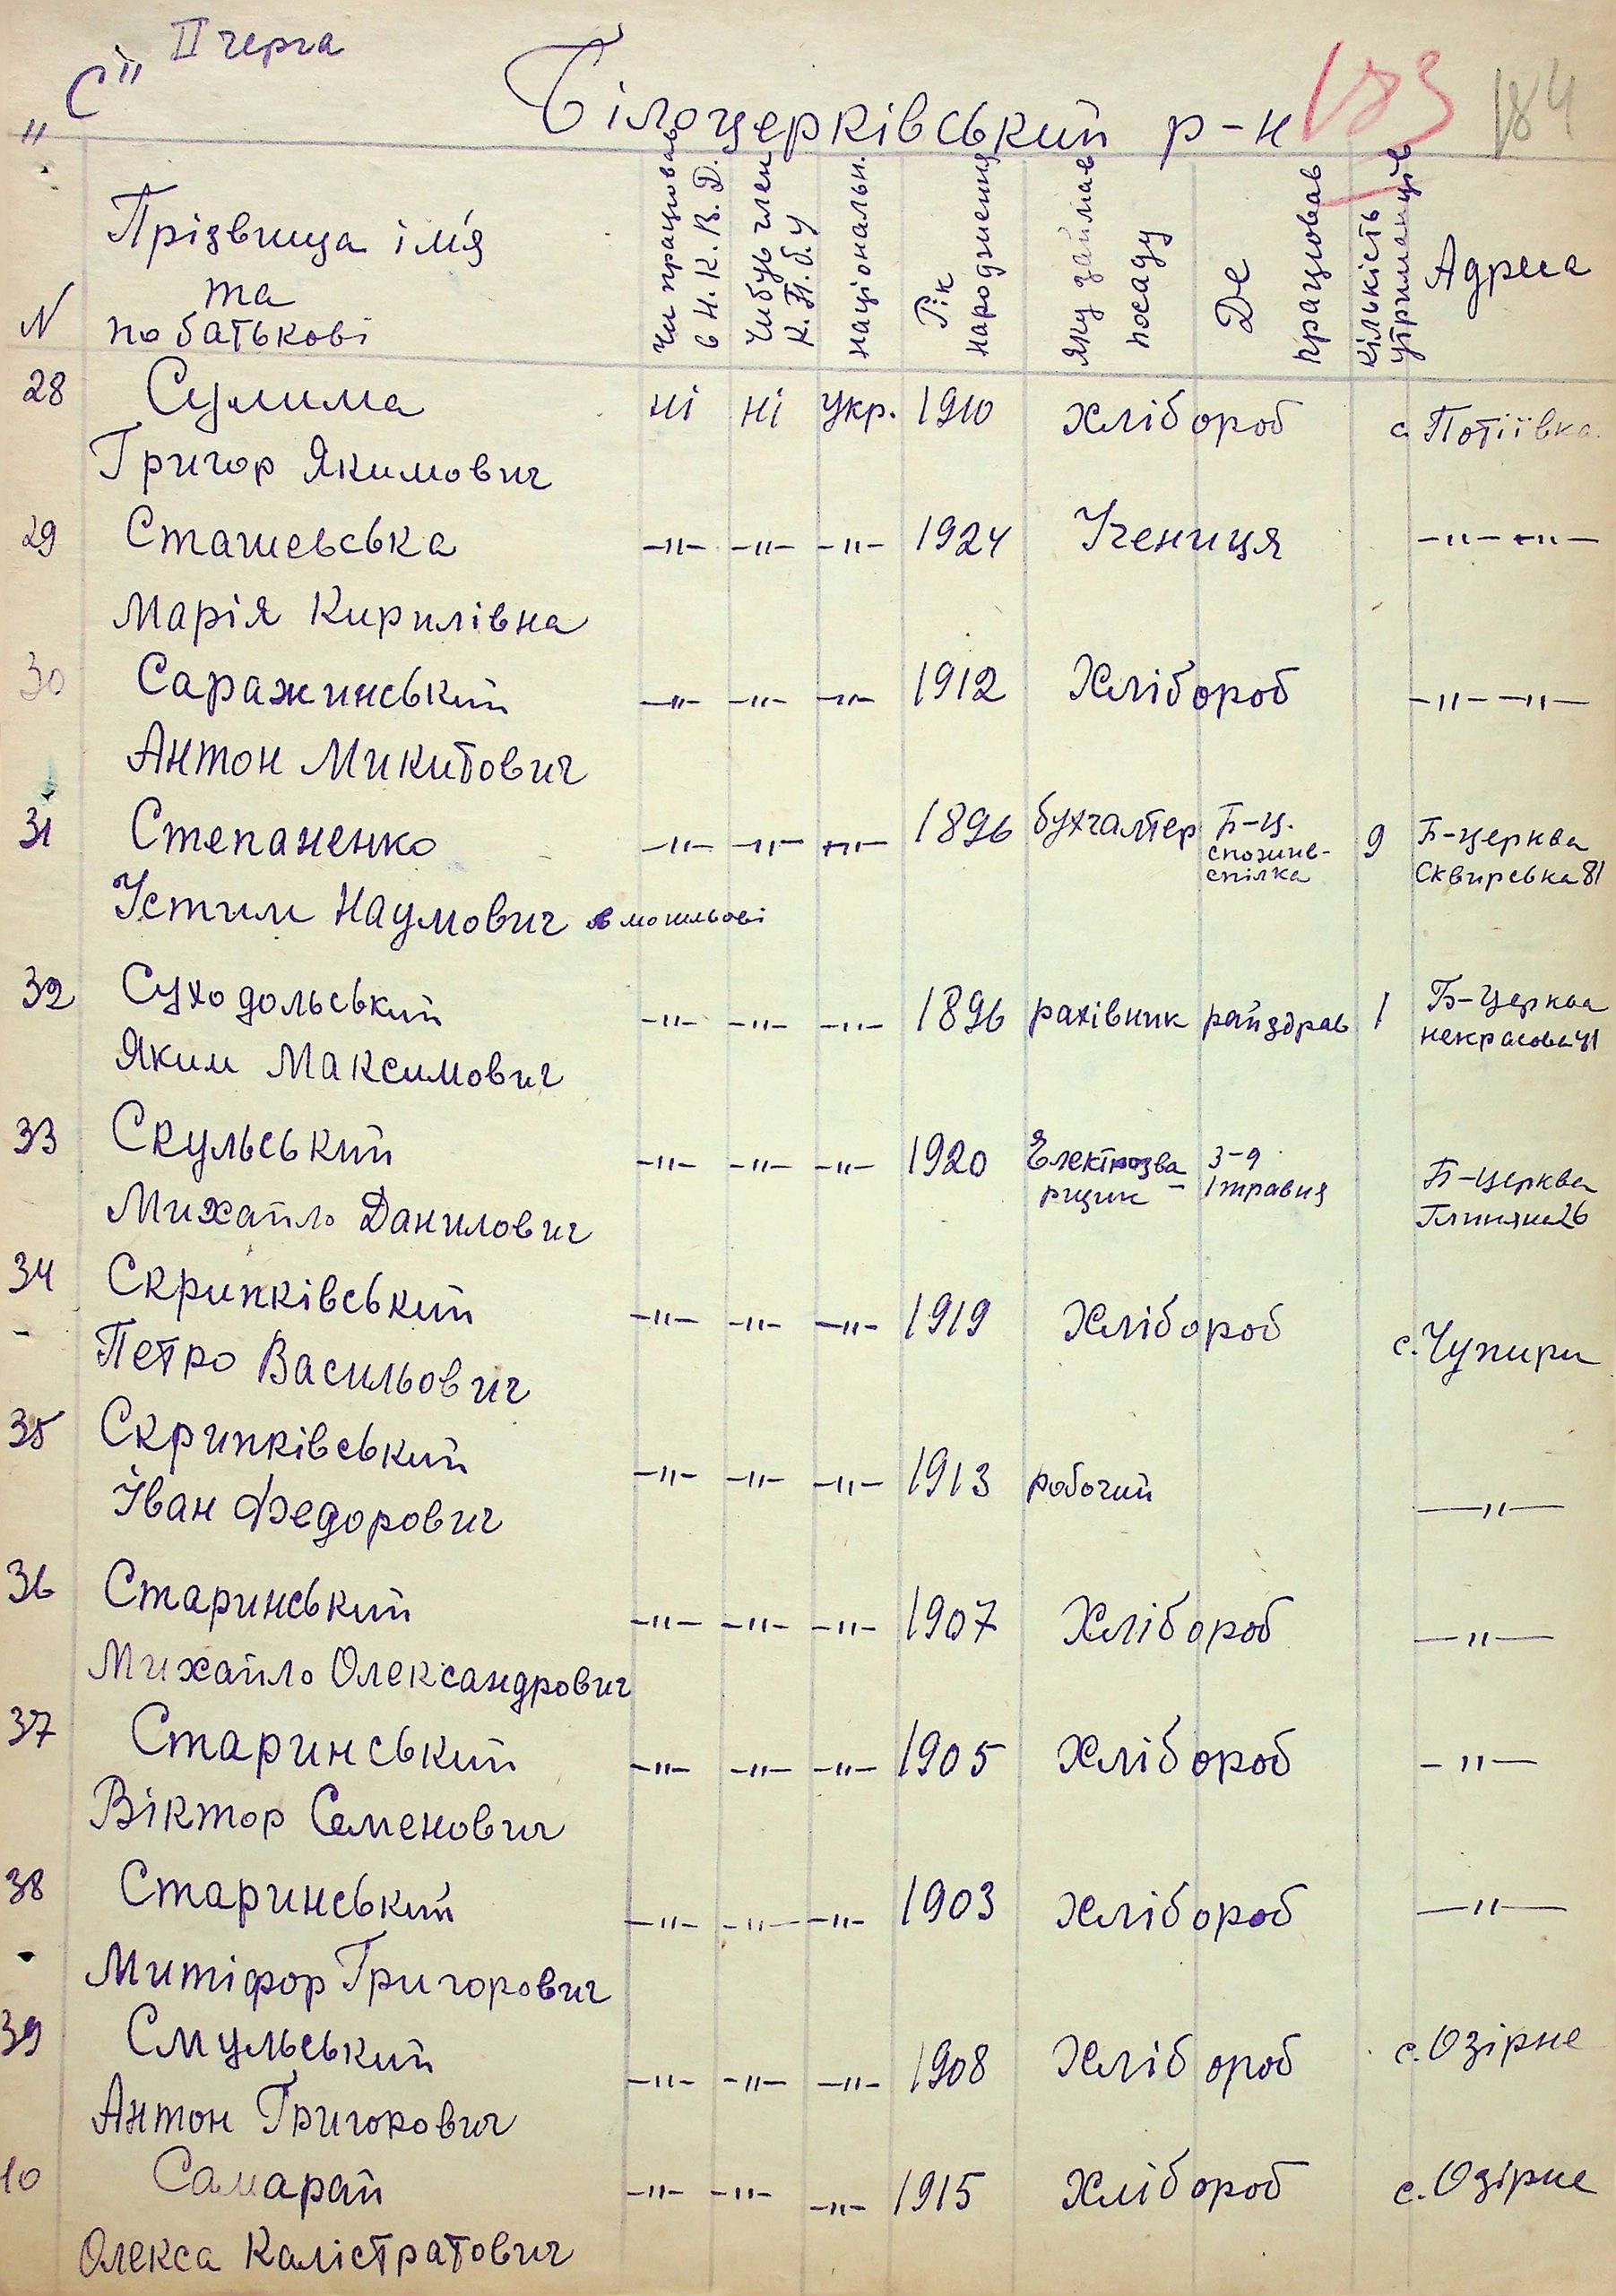 „С" II черга
Білоцерківський р-н 183 184
N Прізвища ім'я та по батькові
Чи працював в Н.К.В.Д.
Чи був член К.П.б.у
Національн.
Рік народження
Яку займав посаду
Де працював
Кількість утриманців
Адреса
28 Сулима ні ні укр. 1910 Хлібороб с. Потіївка
Григор Якимович
29 Сташевська —"— —"— —"— 1924 Учениця —"— —"—
Марія Кирилівна
30 Саражинський —"— —"— —"— 1912 Хлібороб —"— —"—
Антон Микитович
31 Степаненко —"— —"— —"— 1896 бухгалтер Б-Ц. спожив-спілка 9 Б-церква Сквирська 81
Устим Наумович
32 Суходольський —"— —"— —"— 1896 рахівник райздрав 1 Б-Церква некрасова 41
Яким Максимович
33 Скульський —"— —"— —"— 1920 Електрозварщик — з-д 1 травня Б-церква Глиняна 26
Михайло Данилович
34 Скрипківський —"— —"— —"— 1919 Хлібороб с. Чупири
Петро Васильович
35 Скрипківський —"— —"— —"— 1913 робочий —"—
Іван Федорович
36 Старинський —"— —"— —"— 1907 Хлібороб —"—
Михайло Олександрович
37 Старинський —"— —"— —"— 1905 Хлібороб —"—
Віктор Семенович
38 Старинський —"— —"— —"— 1903 Хлібороб —"—
Митіфор Григорович
39 Смульський —"— —"— —"— 1908 Хлібороб с. Озірне
Антон Григорович
10 Самарай —"— —"— —"— 1915 Хлібороб с. Озірне
Олекса Калістратович